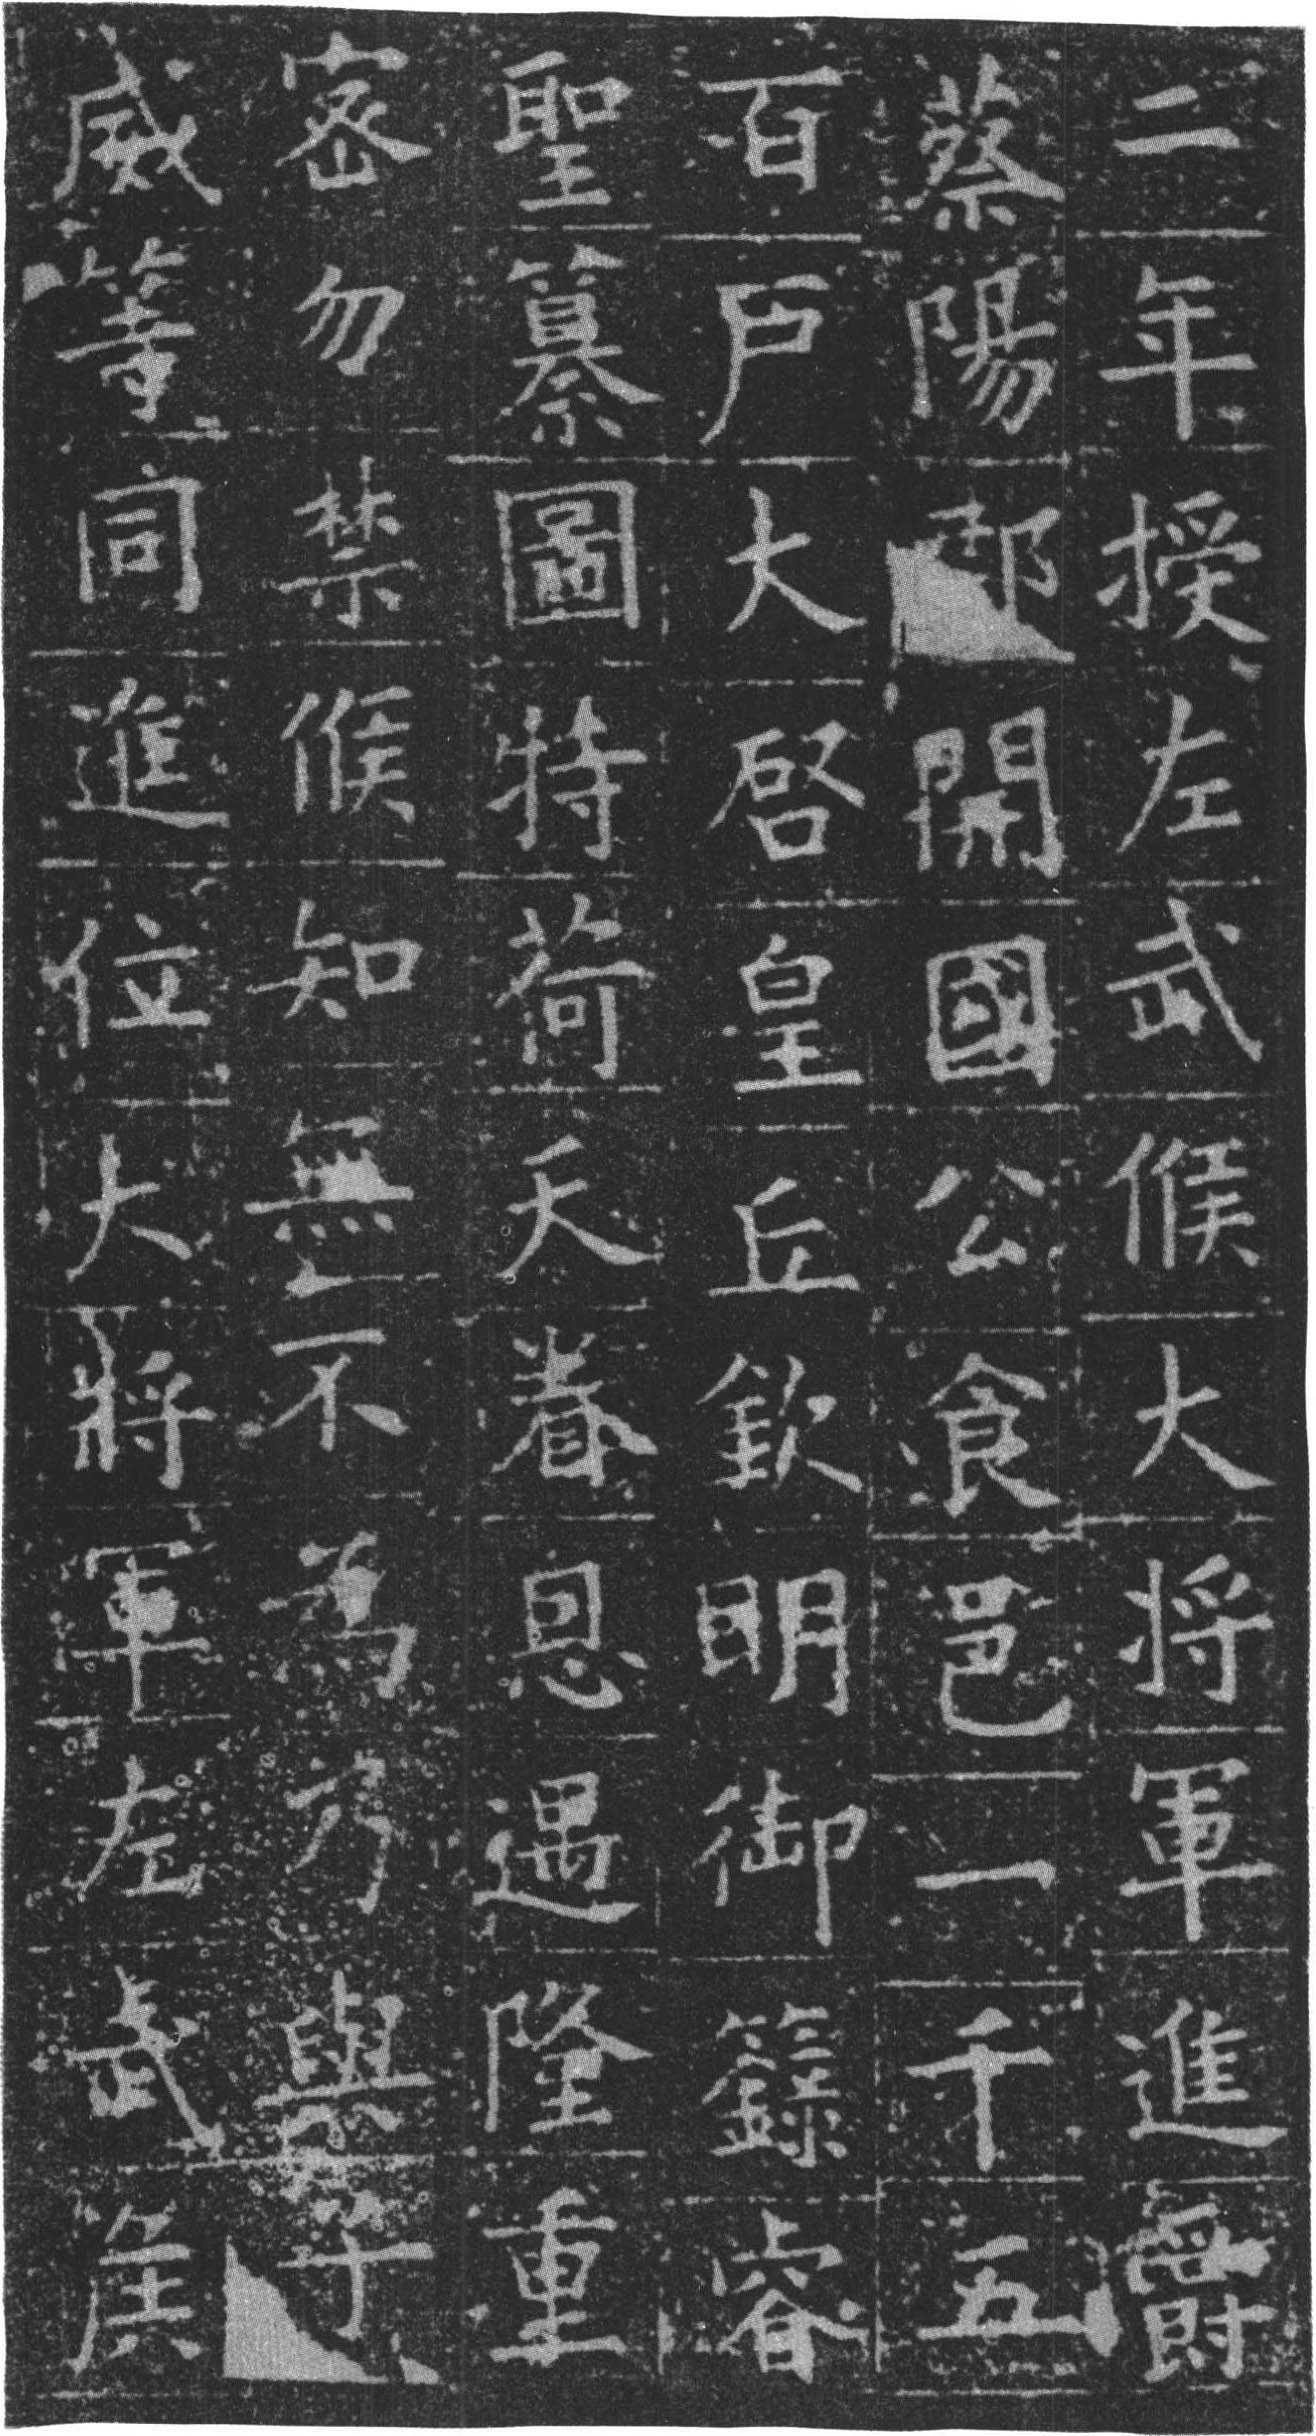 二年授左武候大将軍進爵
蔡陽郡開國公食邑一千五
百戶大啓皇丘欽明御籙睿
聖纂圖特荷天眷恩遇隆重
密勿禁候知無不為乃與宇
威等同進位大將軍左武候